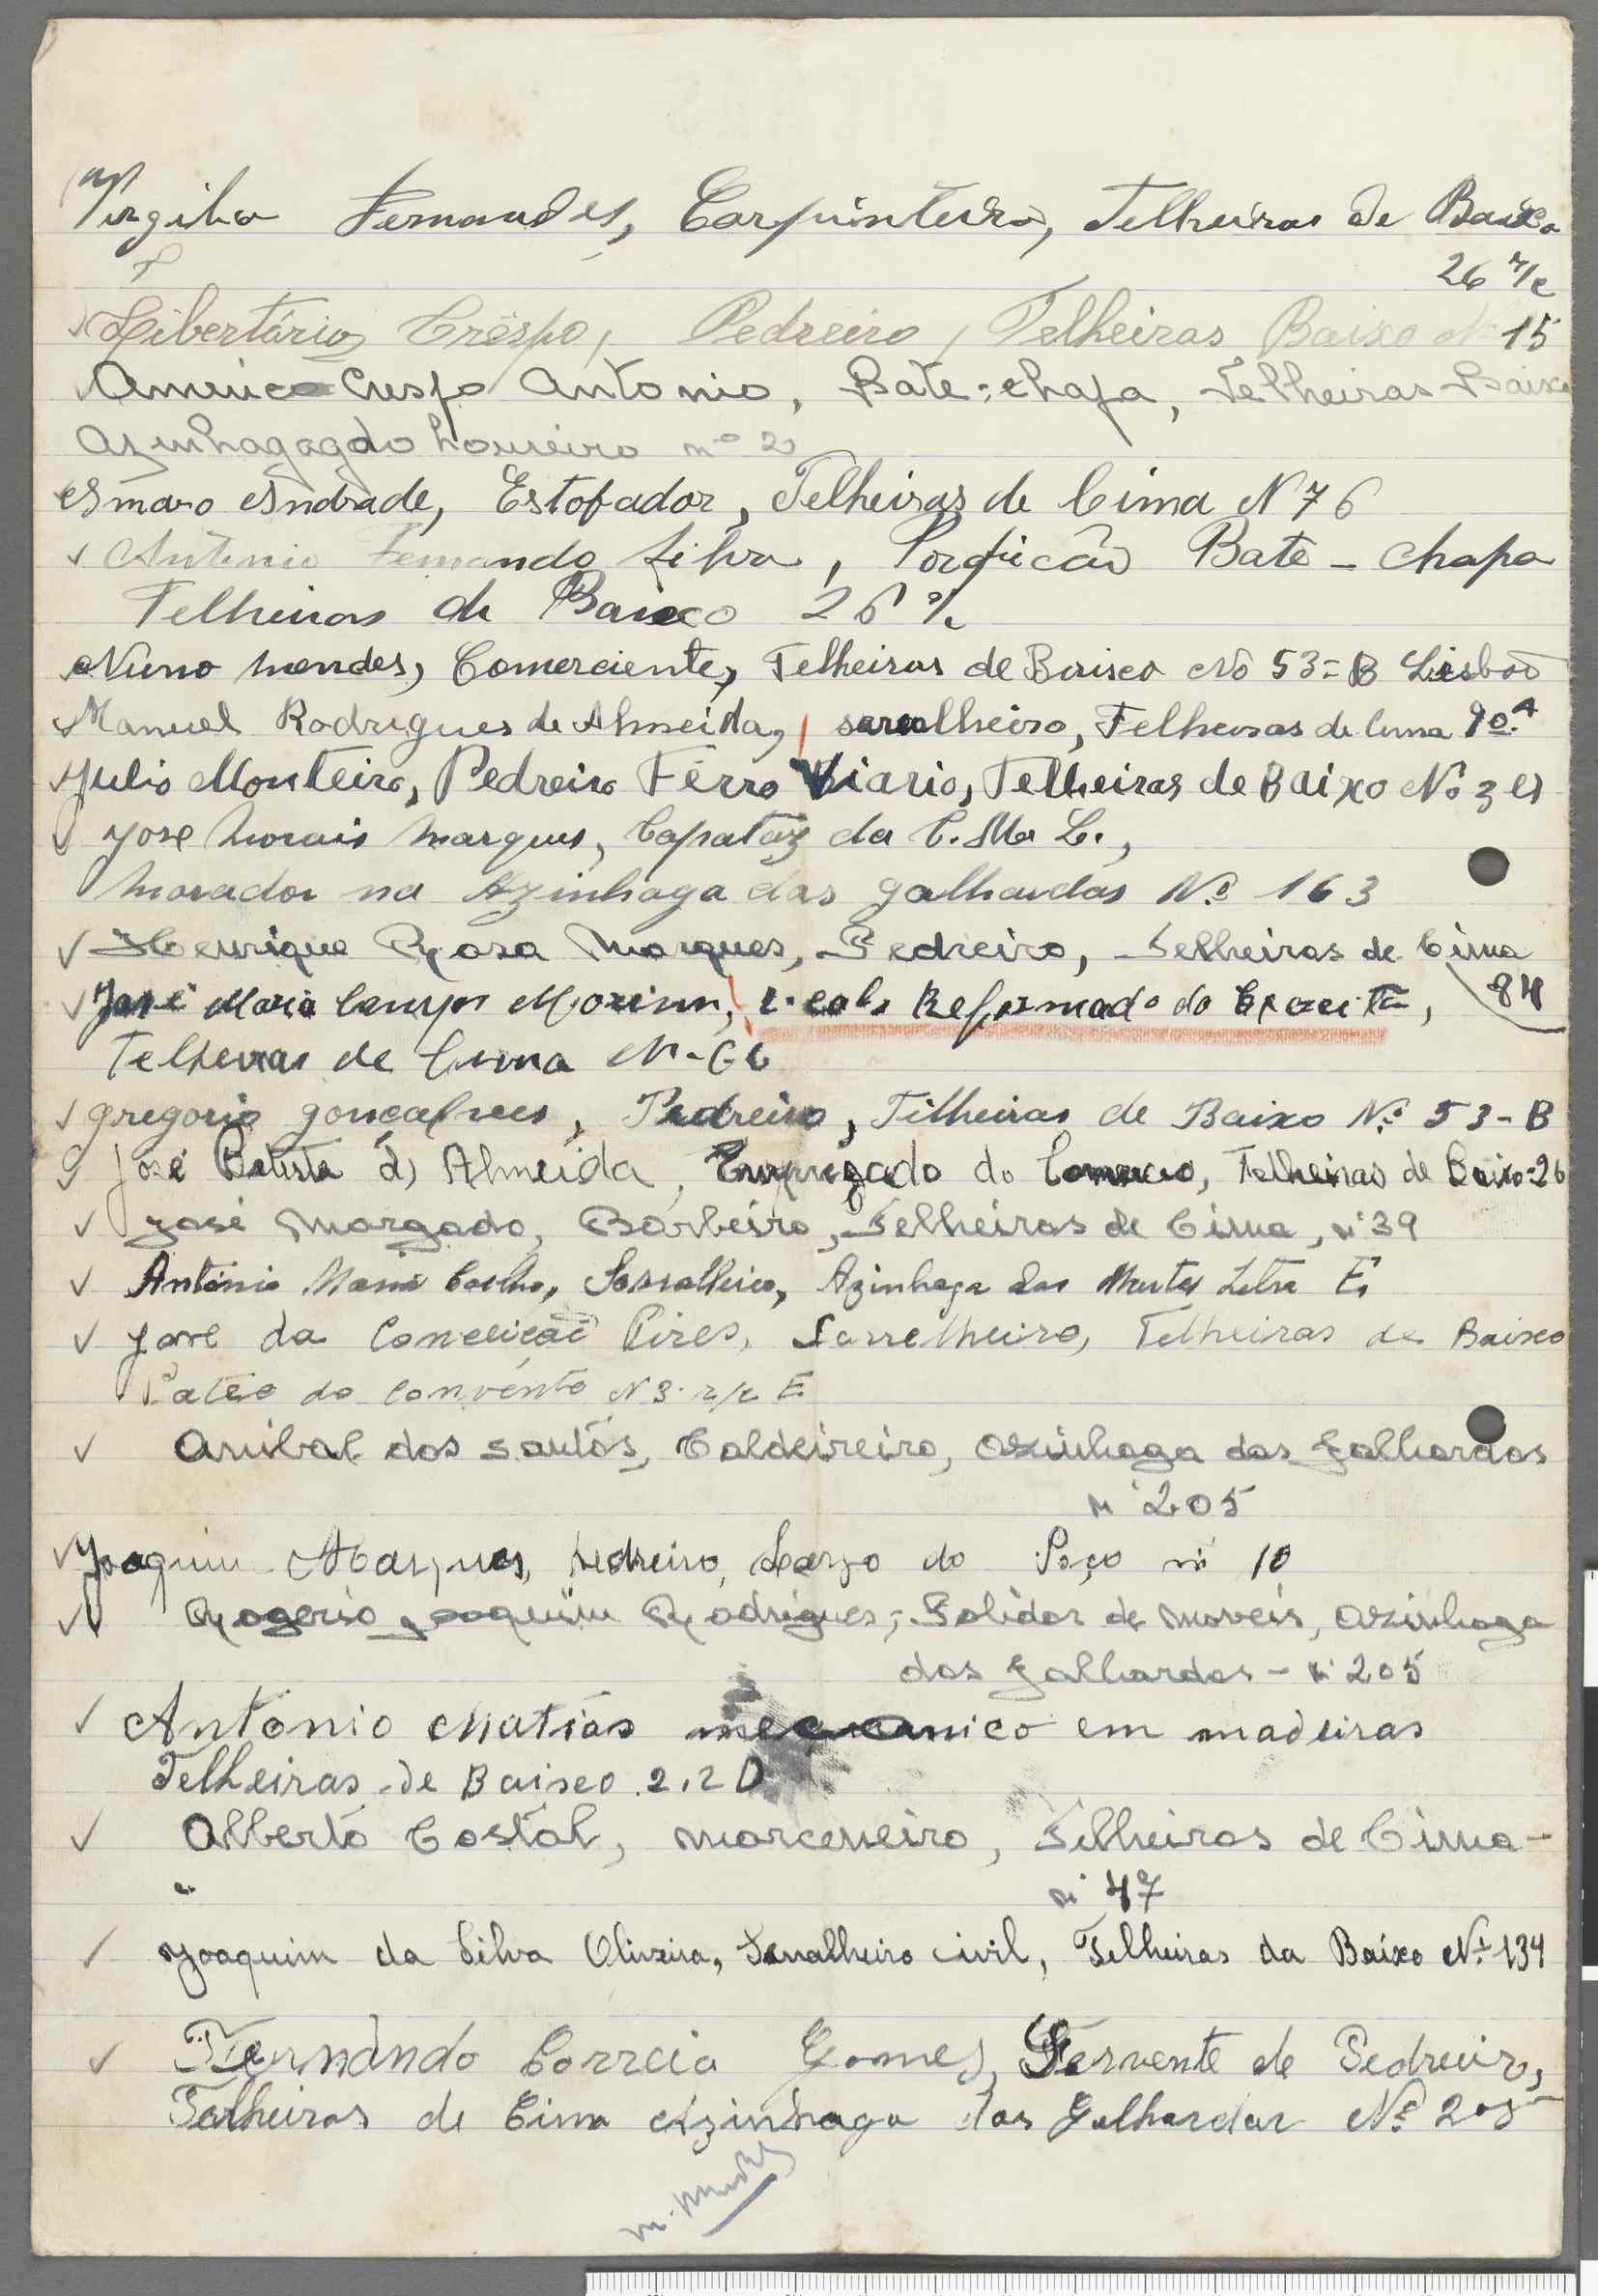 Virgilio Fernandes, Carpinteiro, Telheiras de Baixo
26 r/c
Libertário Créspo, Pedreiro, Telheiras Baixo Nº 15
Americo Crespo Antonio, Bate-chapa, Telheiras Baixo
Azinhaga do Loureiro nº 2
Amaro Andrade, Estofador, Telheiras de Cima N 76
Antonio Fernando Silva, Bate-Chapa
Telheiras de Baixo 26
Nuno Mendes, Comerciente, Telheiras de Baixo Nº 53-B Lisboa
Manuel Rodrigues de Almeida, serralheiro, Telheiras de Cima
Julio Monteiro, Pedreiro Ferro Viario, Telheiras de Baixo Nº 3
José Morais Marques, Capataz da C.M.L.,
morador na Azinhaga das Galhardas Nº 163
Henrique Rosa Marques, Pedreiro, Telheiras de Cima
84
José Maria Campos, 1º cabo Reformado do Exercito,
Telheiras de Cima Nº 66
Gregorio Goncalves, Pedreiro, Tilheiras de Baixo Nº 53-B
José Batista d' Almeida, Empregado do Comercio, Telheiras de Baixo-26
José Morgado, Barbeiro, Telheiras de Cima, nº 39
António Maria Coelho, Serralheiro, Azinhaga das Murtas Letra E.
José da Conceicão Pires, Sarrelheiro, Telheiras de Baixo
Páteo do Convento N 3 r/c E
Anibal dos Santos, Caldeireiro, Azinhaga das Galhardas
nº 205
Joaquim Marques, Pedreiro, Largo do Poço nº 10
Rogerio Joaquim Rodrigues, Polidor de Moveis, Azinhaga
das Galhardas - nº 205
António Matias mecanico em madeiras
Telheiras de Baixo 2.2 D
Alberto Costal, Marceneiro, Telheiras de Cima -
nº 47
Joaquim da Silva Oliveira, Serralheiro civil, Telheiras da Baixo Nº 134
Fernando Correia Gomes, Servente de Pedreiro,
Telheiras de Cima Azinhaga das Galhardas Nº 205